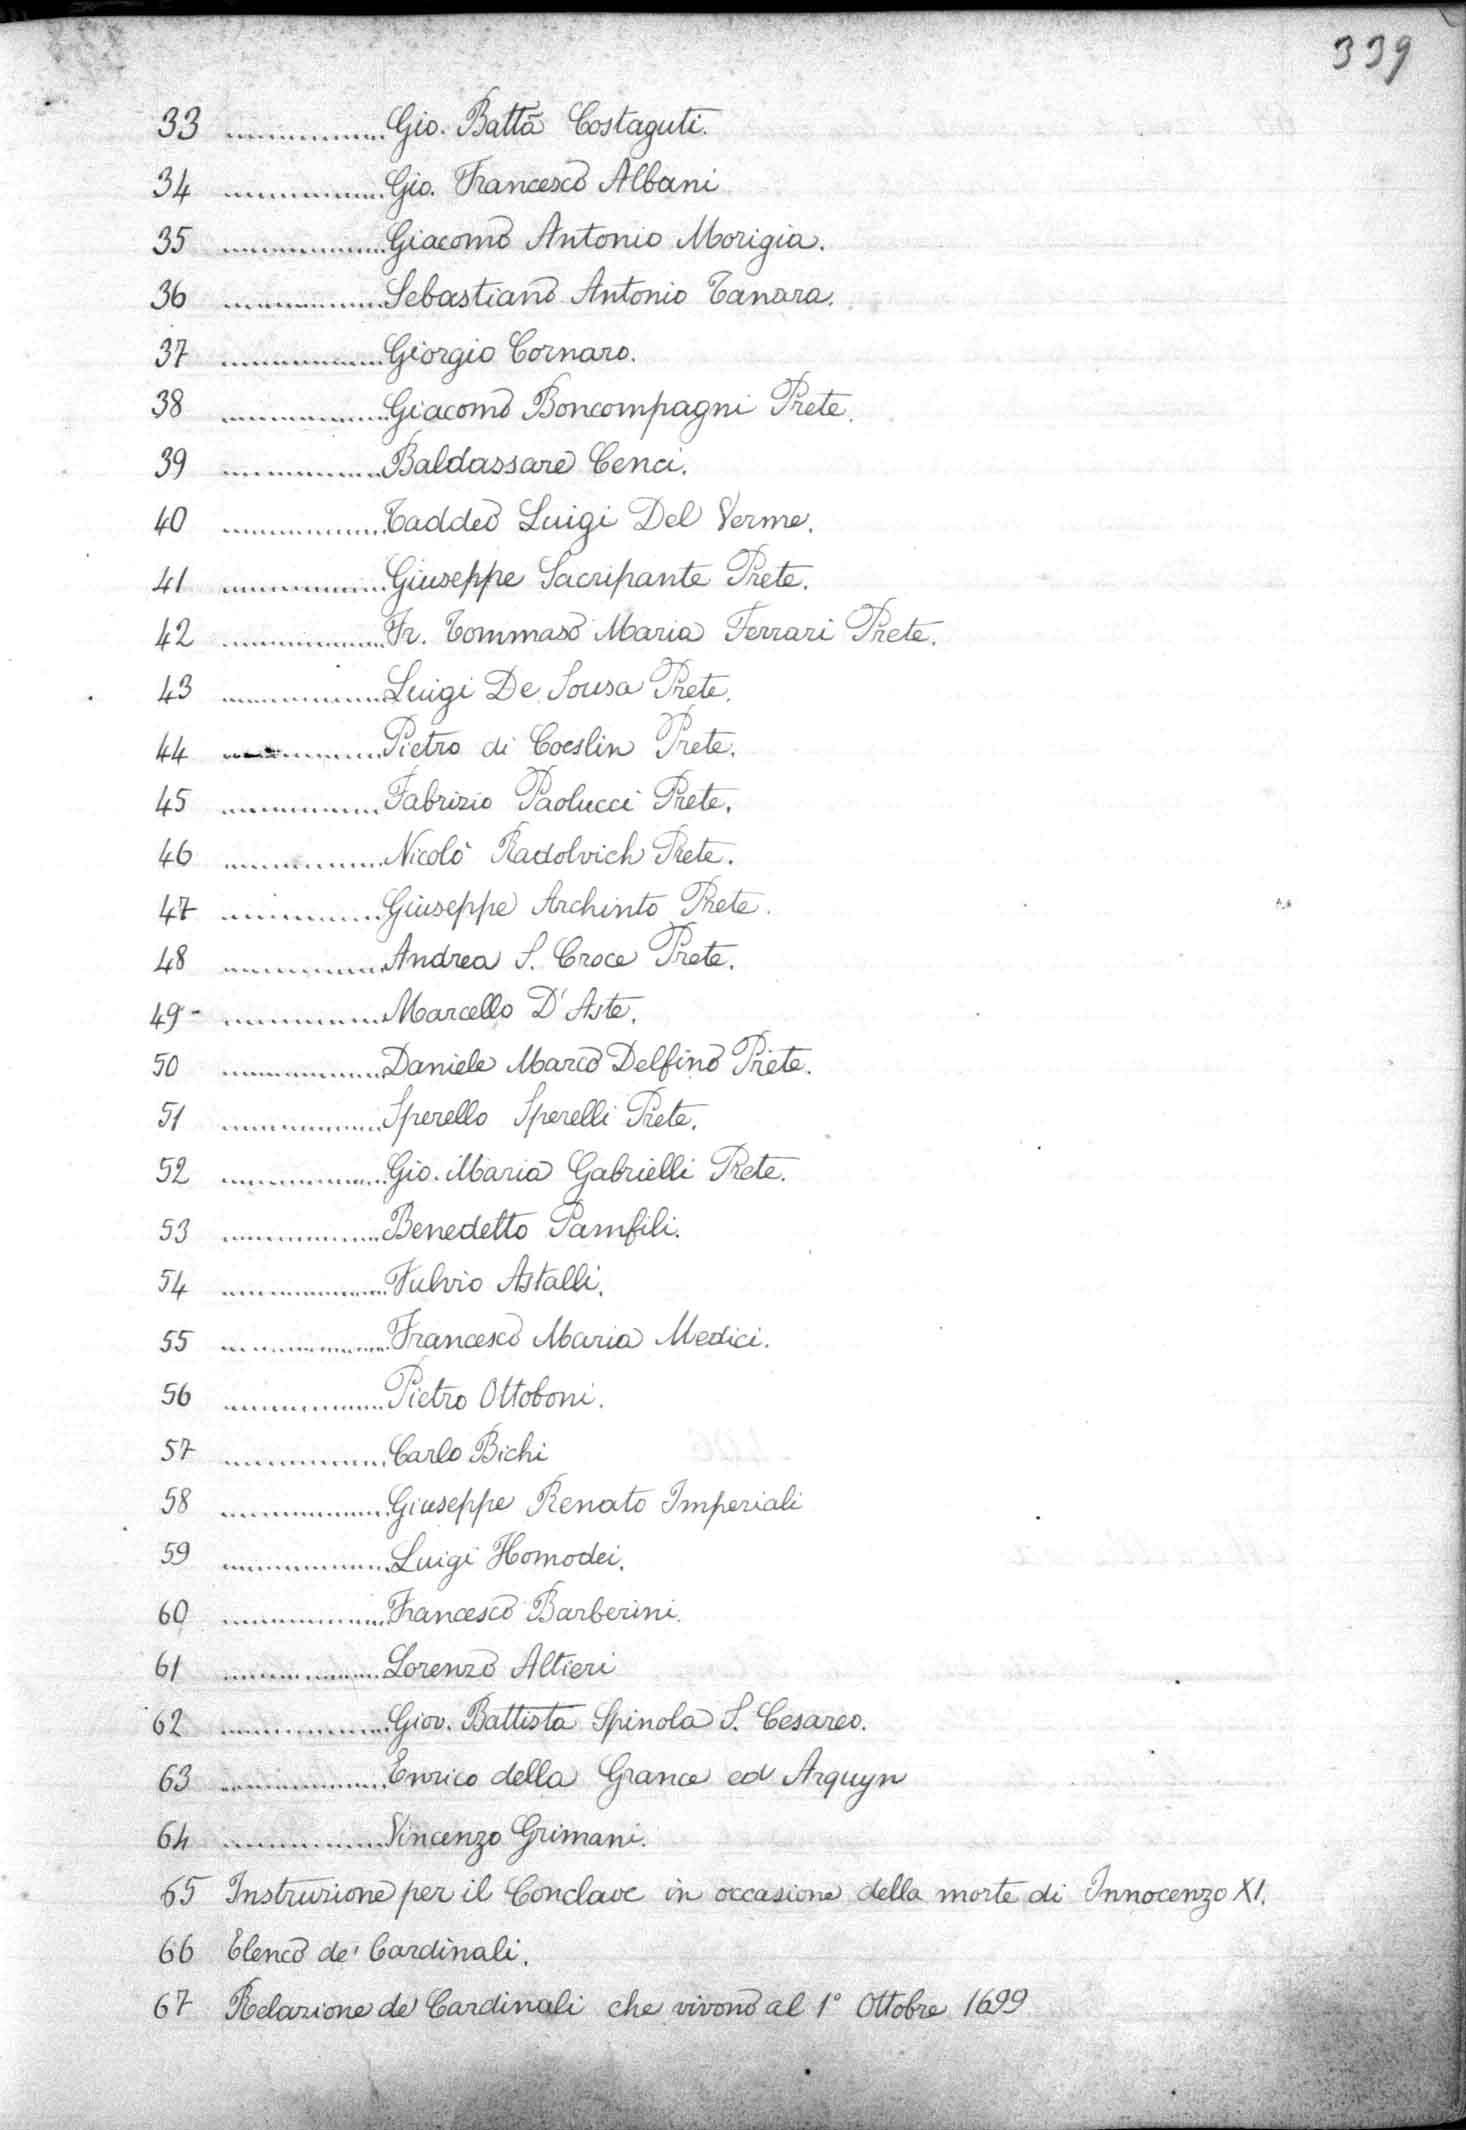 339
33 ................ Gio. Battã Costaguti.
34 ................ Gio. Francesco Albani
35 ................ Giacomo Antonio Morigia.
36 ................ Sebastiano Antonio Tanara.
37 ................ Giorgio Cornaro.
38 ................ Giacomo Boncompagni Prete.
39 ................ Baldassare Cenci.
40 ................ Taddeo Luigi Del Verme.
41 ................ Giuseppe Sacripante Prete.
42 ................ Fr. Tommaso Maria Ferrari Prete.
43 ................ Luigi De Sousa Prete.
44 ................ Pietro di Coeslin Prete.
45 ................ Fabrizio Paolucci Prete.
46 ................ Nicolò Radolvich Prete.
47 ................ Giuseppe Archinto Prete.
48 ................ Andrea S. Croce Prete.
49 - ................ Marcello D'Aste.
50 ................ Daniele Marco Delfino Prete.
51 ................ Sperello Sperelli Prete.
52 ................ Gio. Maria Gabrielli Prete.
53 ................ Benedetto Pamfili.
54 ................ Fulvio Astalli.
55 ................ Francesco Maria Medici.
56 ................ Pietro Ottoboni.
57 ................ Carlo Bichi
58 ................ Giuseppe Renato Imperiali
59 ................ Luigi Homodei.
60 ................ Francesco Barberini.
61 ................ Lorenzo Altieri
62 ................ Giov. Battista Spinola S. Cesareo.
63 ................ Enrico della Grance ed Arquyn
64 ................ Vincenzo Grimani.
65 Instruzione per il Conclave in occasione della morte di Innocenzo XI.
66 Elenco de' Cardinali.
67 Relazione de' Cardinali che vivono al 1° Ottobre 1699